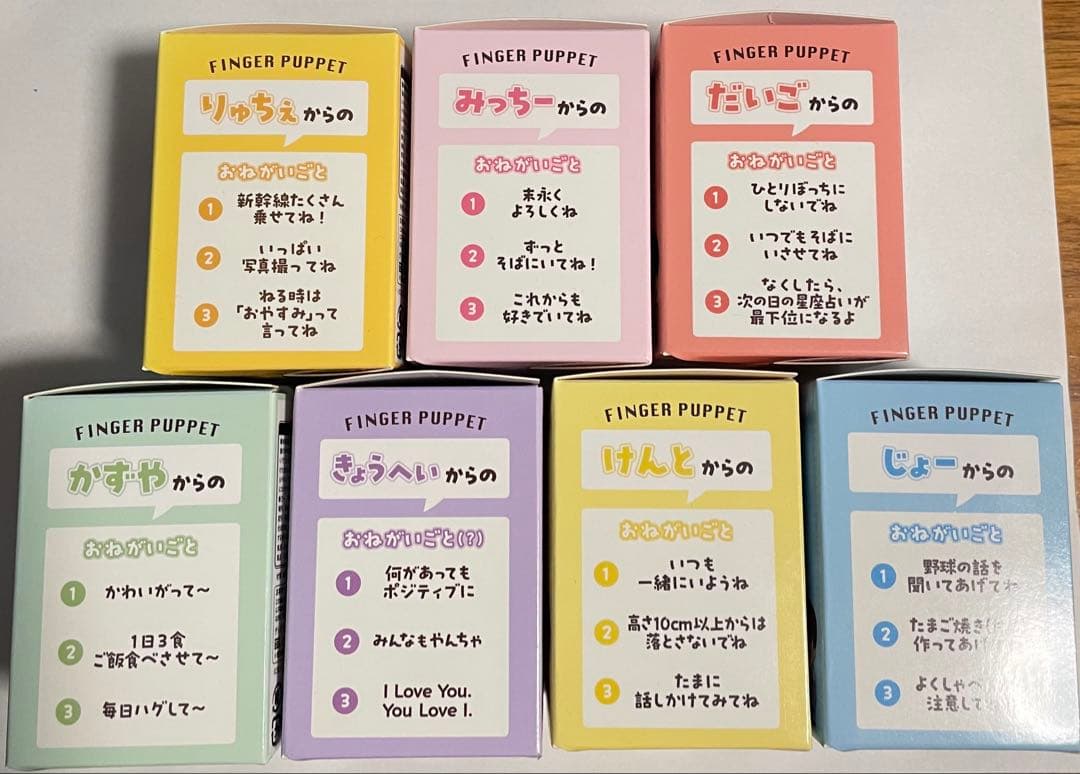 FINGER PUPPET
りゅちぇからの
おねがいごと
1 新幹線たくさん
乗せてね!
2 いっぱい
写真撮ってね
3 ねる時は
「おやすみ」って
言ってね
FINGER PUPPET
みっちーからの
おねがいごと
1 末永く
よろしくね
2 ずっと
そばにいてね!
3 これからも
好きでいてね
FINGER PUPPET
だいごからの
おねがいごと
1 ひとりぼっちに
しないでね
2 いつでもそばに
いさせてね
3 なくしたら、
次の日の星座占いが
最下位になるよ
FINGER PUPPET
かずやからの
おねがいごと
1 かわいがって〜
2 1日3食
ご飯食べさせて〜
3 毎日ハグして〜
FINGER PUPPET
きょうへいからの
おねがいごと(?)
1 何があっても
ポジティブに
2 みんなもやんちゃ
3 I Love You.
You Love I.
FINGER PUPPET
けんとからの
おねがいごと
1 いつも
一緒にいようね
2 高さ10cm以上からは
落とさないでね
3 たまに
話しかけてみてね
FINGER PUPPET
じょーからの
おねがいごと
1 野球の話を
聞いてあげてね
2 たまご焼き
作ってあげ
3 よくしゃべ
注意して